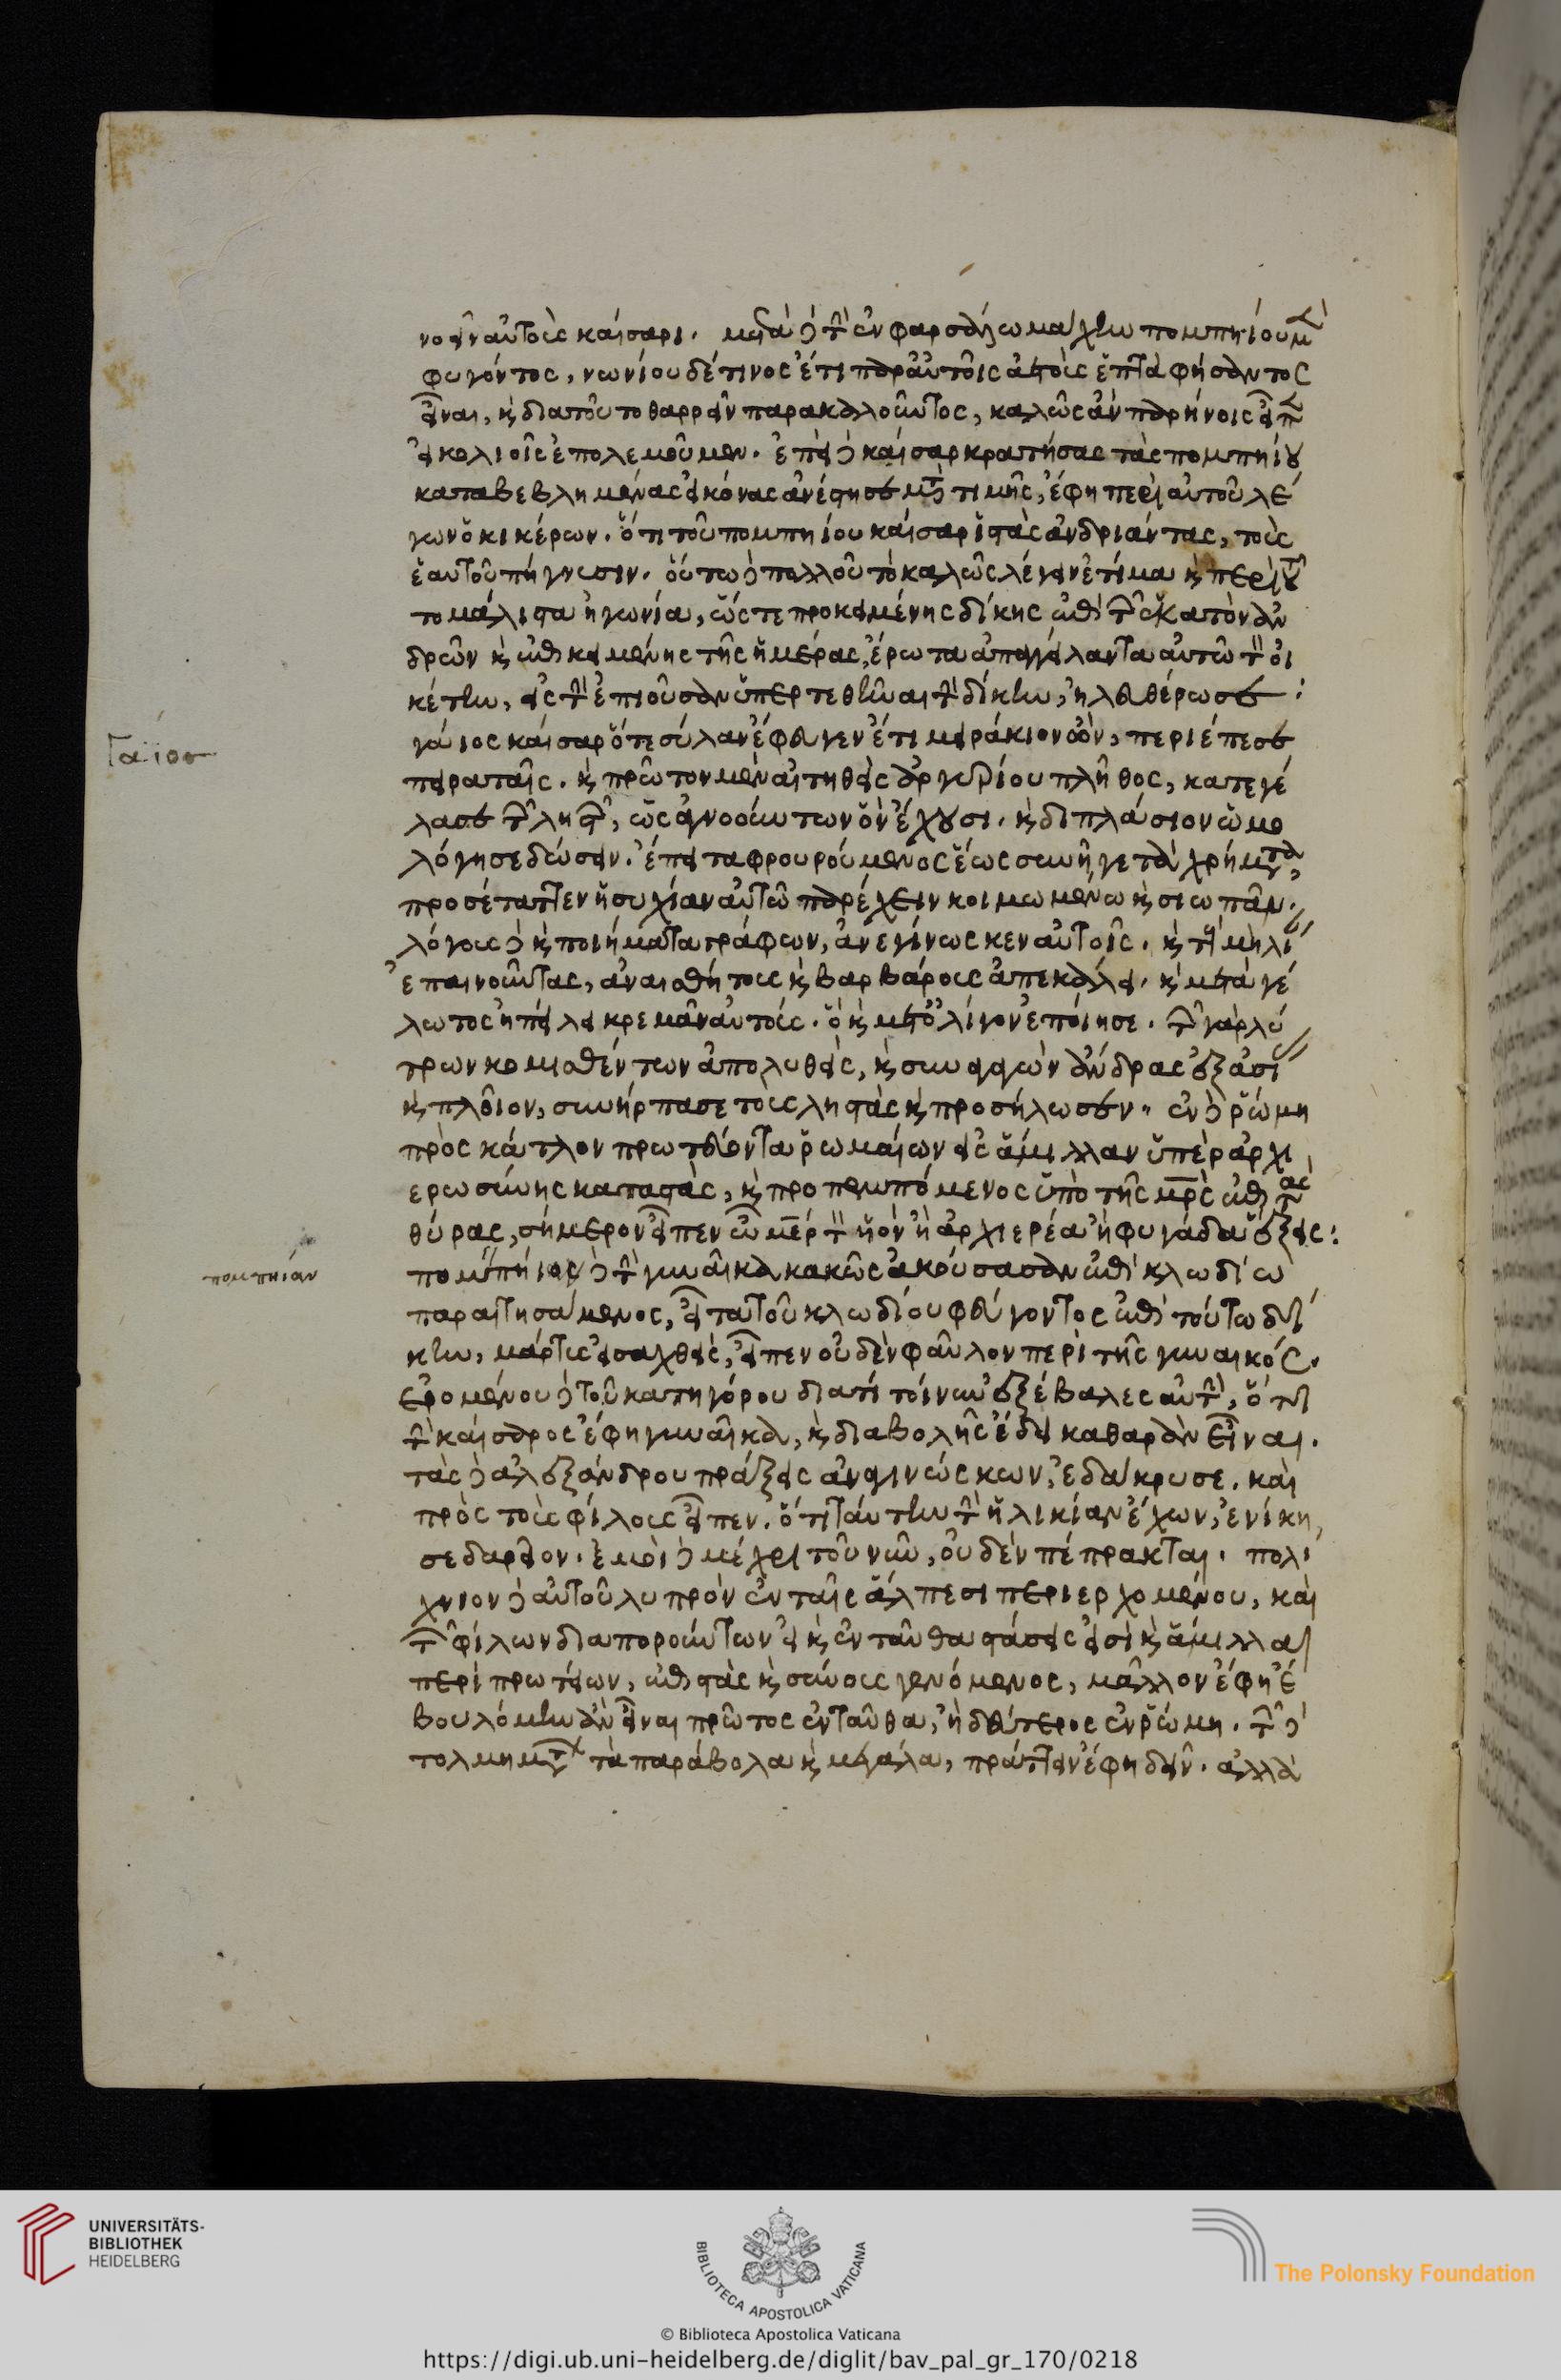 νοεῖν αὐτοὺς καίσαρι. μετὰ δὲ τὴν ἐν φαρσάλω μάχην πομπηίου μὲν
φυγόντος, νωνίου δέ τινος ἔτι παρ' αὐτοῖς ἀετοὺς ἑπτὰ φήσαντος
εἶναι, καὶ διὰ τοῦτο θαρρεῖν παρακαλοῦντος, καλῶς ἂν παρήνοις εἶπεν
εἰ κολοιοῖς ἐπολεμοῦμεν. ἐπεὶ δὲ καίσαρ κρατήσας τὰς πομπηίου
καταβεβλημένας εἰκόνας ἀνέστησε μετὰ τιμῆς, ἔφη περὶ αὐτοῦ λέ
γων ὁ κικέρων. ὅτι τοῦ πομπηίου καίσαρ ἱστὰς ἀνδριάντας, τοὺς
ἑαυτοῦ πήγνυσιν. οὕτω δὲ πολλοῦ τὸ καλῶς λέγειν ἐτίμα καὶ περὶ τοῦ
το μάλιστα ἠγωνία, ὥστε προκειμένης δίκης ἐπὶ τῶν ἑκατὸν ἀν
δρῶν καὶ ἐπικειμένης τῆς ἡμέρας, ἔρωτα ἀπαγγείλαντα αὐτῶ τὸν οἰ
κέτην, εἰς τὴν ἐπιοῦσαν ὑπερτεθῆναι τὴν δίκην, ἠλευθέρωσε:
γάιος καίσαρ ὅτε σύλαν ἔφευγεν ἔτι μειράκιον ὢν, περιέπεσε
πειραταῖς. καὶ πρῶτον μὲν αἰτηθεὶς ἀργυρίου πλῆθος, κατεγέ
λασε τῶν ληστῶν, ὡς ἀγνοούντων ὃν ἔχουσι. καὶ διπλάσιον ὡμο
λόγησε δώσειν. ἔπειτα φρουρούμενος ἕως συνῆγε τὰ χρήματα,
προσέταττεν ἡσυχίαν αὐτῶ παρέχειν κοιμωμένω καὶ σιωπᾶν.
λόγους δὲ καὶ ποιήματα γράφων, ἀνεγίνωσκεν αὐτοῖς. καὶ τοὺς μὴ λί
ἐπαινοῦντας, ἀναισθήτους καὶ βαρβάρους ἀπεκάλει. καὶ μετὰ γέ
λωτος ἠπείλει κρεμᾶν αὐτούς. ὃ καὶ μετ' ὀλίγον ἐποίησε. τῶν γὰρ λύ
τρων κομισθέντων ἀπολυθεὶς, καὶ συναγαγὼν ἄνδρας ἐξ ἀσί
καὶ πλοῖον, συνήρπασε τοὺς ληστὰς καὶ προσήλωσεν. ἐν δὲ ῥώμη
πρὸς κάτλον πρωτεύοντα ῥωμαίων εἰς ἅμιλλαν ὑπὲρ ἀρχι
ερωσύνης καταστὰς, καὶ προπεμπόμενος ὑπὸ τῆς μητρὸς ἐπὶ τὰς
θύρας, σήμερον εἶπεν ὦ μῆτερ τὸν υἱὸν ἢ ἀρχιερέα ἢ φυγάδα ἕξεις:
πομπήιος δὲ τὴν γυναῖκα κακῶς ἀκούσασαν ἐπὶ κλωδίω
παραιτησάμενος, εἶτα τοῦ κλωδίου φεύγοντος ἐπὶ τούτω δί
κην, μάρτυς εἰσαχθεὶς, εἶπεν οὐδὲν φαῦλον περὶ τῆς γυναικός.
ἐρομένου δὲ τοῦ κατηγόρου διατί τοίνυν ἐξέβαλες αὐτὴν, ὅτι
τὴν καίσαρος ἔφη γυναῖκα, καὶ διαβολῆς ἔδει καθαρὰν εἶναι.
τὰς δὲ ἀλεξάνδρου πράξεις ἀναγινώσκων, ἐδάκρυσε. καὶ
πρὸς τοὺς φίλους εἶπεν. ὅτι ταύτην τὴν ἡλικίαν ἔχων, ἐνίκη
σε δαρεῖον. ἐμοὶ δὲ μέχρι τοῦ νῦν, οὐδὲν πέπρακται. πολί
χνιον δὲ αὐτοῦ λυπρὸν ἐν ταῖς ἄλπεσι περιερχομένου, καὶ
τῶν φίλων διαπορούντων εἰ καὶ ἐνταῦθα στάσεις εἰσὶ καὶ ἅμιλλαι
περὶ πρωτείων, ἐπιστὰς καὶ σύνους γενόμενος, μᾶλλον ἔφη ἐ
βουλόμην ἂν εἶναι πρῶτος ἐνταῦθα, ἢ δεύτερος ἐν ῥώμη. τῶν δὲ
τολμημάτων τὰ παράβολα καὶ μεγάλα, πράττειν ἔφη δεῖν. ἀλλὰ
Γαϊος
πομπηίαν
UNIVERSITÄTS-
BIBLIOTHEK
HEIDELBERG
BIBLIOTECA APOSTOLICA VATICANA
The Polonsky Foundation
© Biblioteca Apostolica Vaticana
https://digi.ub.uni-heidelberg.de/diglit/bav_pal_gr_170/0218